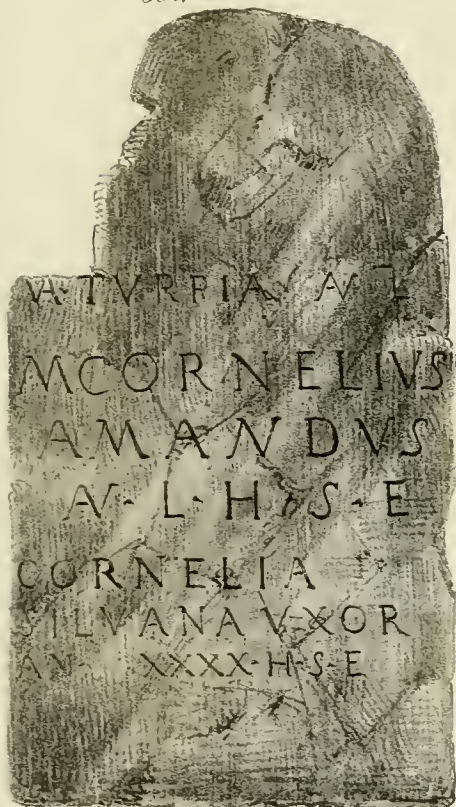 TVRPIA AN L
M CORNELIVS
AMANDVS
AN · L · H · S · E
CORNELIA
SILVANA VXOR
AN XXXX · H · S · E